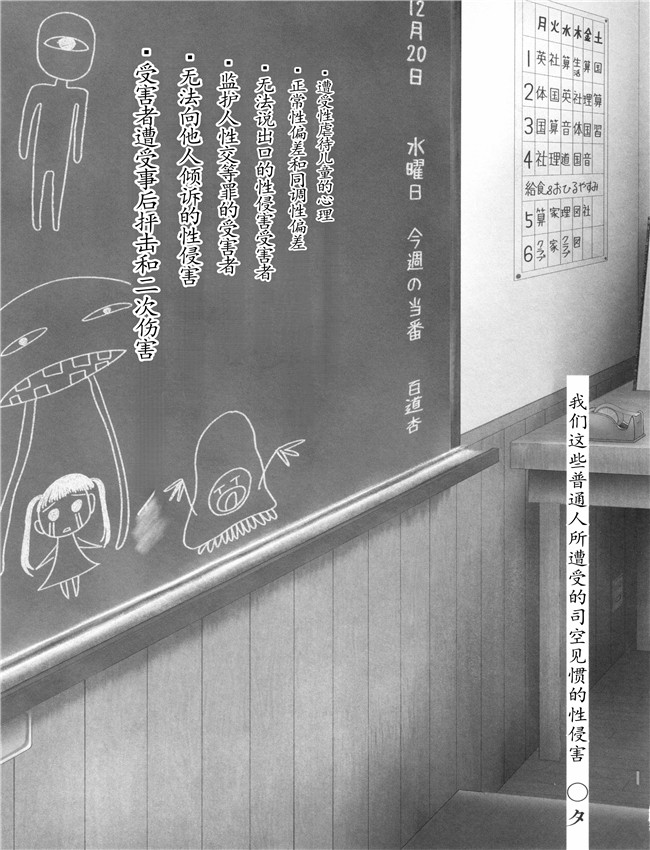 月火水木金土
1英社算生活算国
2体国英社理算
3国算音体国習
4社理道国音
給食&おひるやすみ
5算家理図社
6クラブ家クラブ図
12月20日 水曜日 今週の当番 百道杏
▪遭受性虐待儿童的心理
▪正常性偏差和同调性偏差
▪无法说出口的性侵害受害者
▪监护人性交等罪的受害者
▪无法向他人倾诉的性侵害
▪受害者遭受事后抨击和二次伤害
我们这些普通人所遭受的司空见惯的性侵害 〇夕